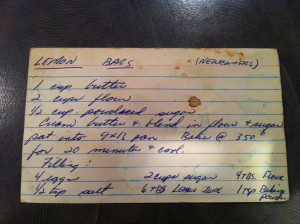 LEMON BARS (NEWCOMERS)
1 cup butter
2 cups flour
1/2 cup powdered sugar
Cream butter & blend in flour & sugar
pat into 9x13 pan Bake @ 350°
for 20 minutes & cool.
Filling:
4 eggs 2 cups sugar 4 TBS. Flour
1/2 tsp salt 6 TBS Lemon Juice 1 tsp Baking
Powder